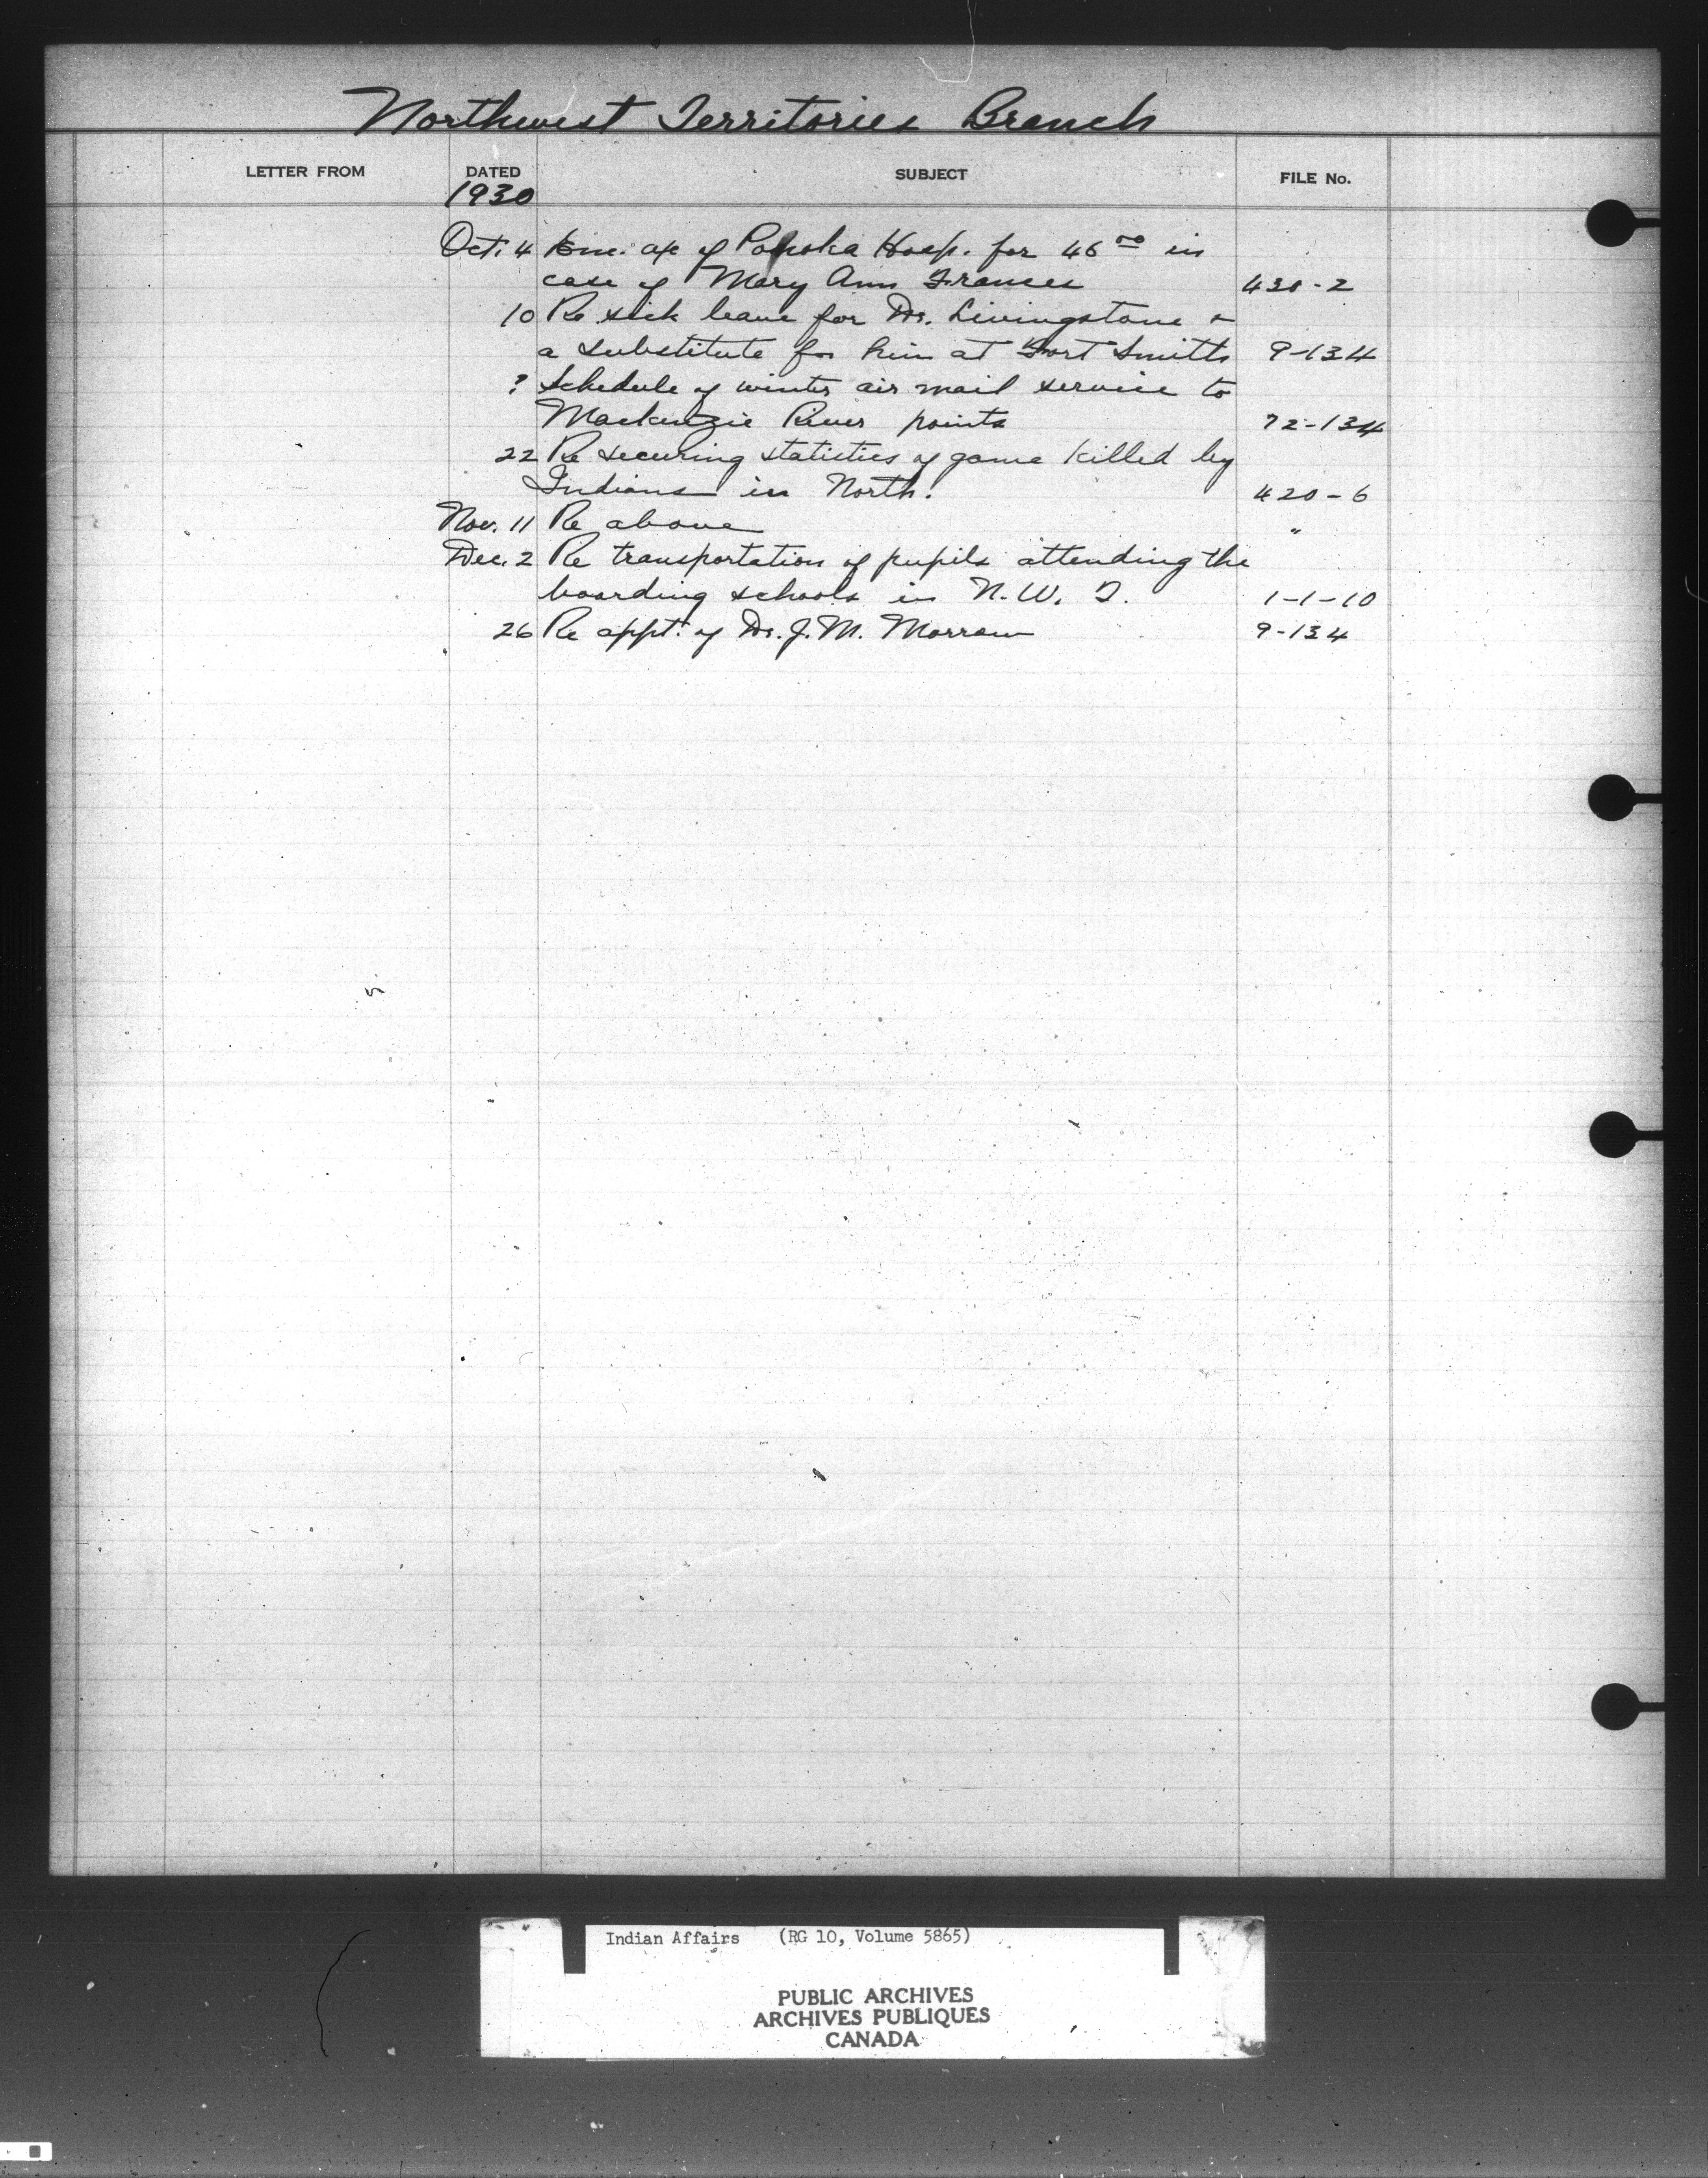 Northwest Territories Branch
LETTER FROM DATED SUBJECT FILE No.
1930
Oct. 4 Enc. a/c of Ponoka Hosp. for 46 00 in
case of Mary Ann Frances 430-2
10 Re sick leave for Dr. Livingstone &
a substitute for him at Fort Smith 9-134
? Schedule of winter air mail service to
Mackenzie River points 72-134
22 Re securing statistics of game killed by
Indians in North. 420-6
Nov. 11 Re above "
Dec. 2 Re transportation of pupils attending the
boarding schools in N.W.T. 1-1-10
26 Re appt. of Dr. J. M. Morrow 9-134
Indian Affairs (RG 10, Volume 5865)
PUBLIC ARCHIVES
ARCHIVES PUBLIQUES
CANADA